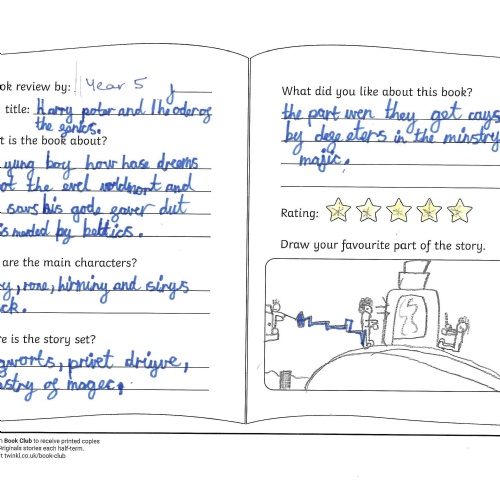 ok review by: Year 5
title: Harry poter and the oder of
the fenics.
t is the book about?
yung boy how hase dreams
ot the evel voldmort and
savs his gode faver but
is merded by
are the main characters?
y, rone, hirminy and
ck.
re is the story set?
gworts, privet driyve,
stry of magec,
n Book Club to receive printed copies
Originals stories each half-term.
t twinkl.co.uk/book-club
What did you like about this book?
the part wen they get cays
by deqe eters in the minstry
majic.
Rating:
Draw your favourite part of the story.